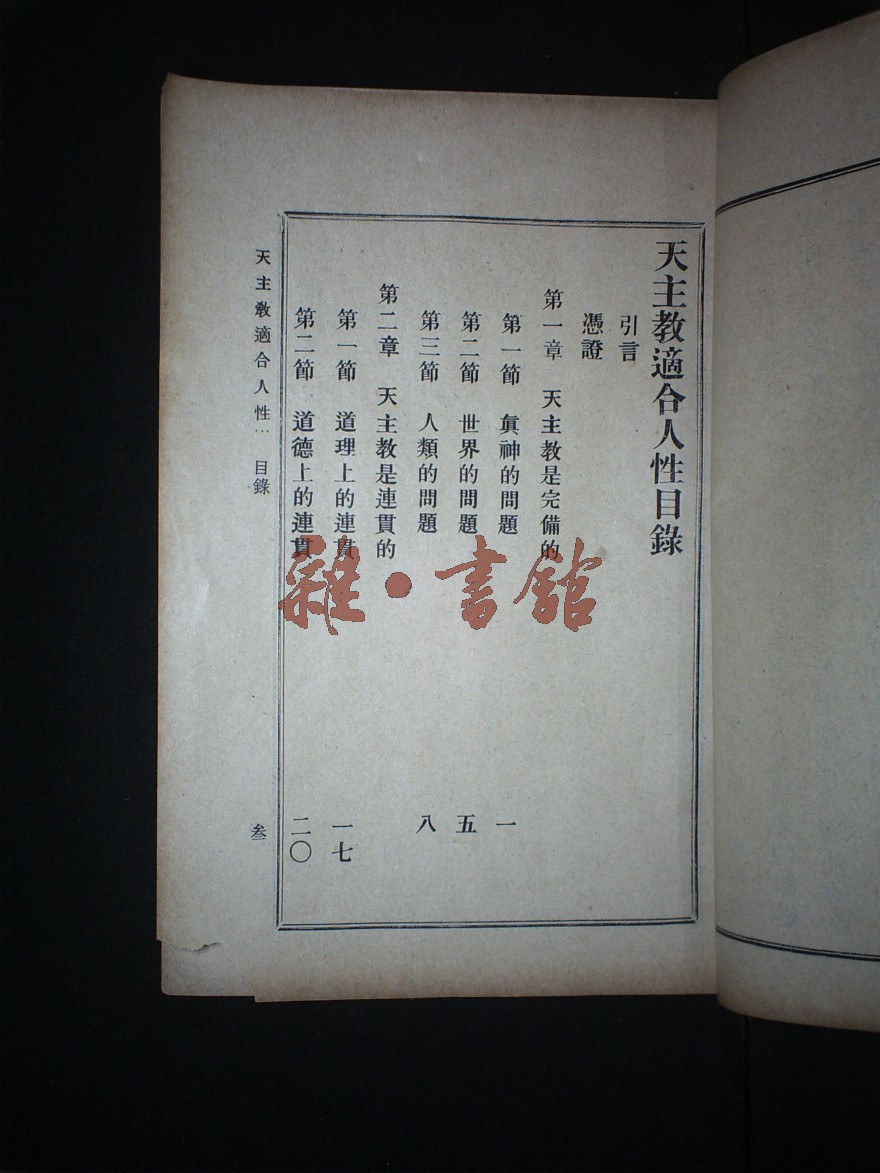 天主教適合人性目錄
引言
憑證
第一章 天主教是完備的
第一節 眞神的問題 一
第二節 世界的問題 五
第三節 人類的問題 八
第二章 天主教是連貫的
第一節 道理上的連貫 一七
第二節 道德上的連貫 二〇
天主教適合人性… 目錄 叁
雜·書館